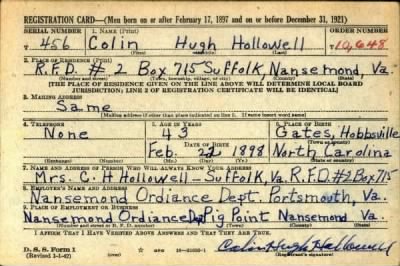 REGISTRATION CARD—(Men born on or after February 17, 1897 and on or before December 31, 1921)
SERIAL NUMBER 1. NAME (Print) ORDER NUMBER
T 456 Colin Hugh Hollowell T10,648
(First) (Middle) (Last)
2. PLACE OF RESIDENCE (Print)
R.F.D. # 2 Box 715 Suffolk Nansemond, Va.
(Number and street) (Town, township, village, or city) (County) (State)
[THE PLACE OF RESIDENCE GIVEN ON THE LINE ABOVE WILL DETERMINE LOCAL BOARD
JURISDICTION; LINE 2 OF REGISTRATION CERTIFICATE WILL BE IDENTICAL]
3. MAILING ADDRESS
Same
[Mailing address if other than place indicated on line 2. If same insert word same]
4. TELEPHONE 5. AGE IN YEARS 6. PLACE OF BIRTH
None 43 Gates, Hobbsville
DATE OF BIRTH (Town or county)
Feb. 22 1898 North Carolina
(Exchange) (Number) (Mo.) (Day) (Yr.) (State or country)
7. NAME AND ADDRESS OF PERSON WHO WILL ALWAYS KNOW YOUR ADDRESS
Mrs. C. H Hollowell – Suffolk, Va. R.F.D.#2 Box 715
8. EMPLOYER'S NAME AND ADDRESS
Nansemond Ordiance Dept. Portsmouth, Va.
9. PLACE OF EMPLOYMENT OR BUSINESS
Nansemond Ordiance Dep Pig Point Nansemond Va.
(Number and street or R. F. D. number) (Town) (County) (State)
I AFFIRM THAT I HAVE VERIFIED ABOVE ANSWERS AND THAT THEY ARE TRUE.
D. S. S. Form 1
(Revised 1-1-42) (over) Colin Hugh Hollowell
(Registrant's signature)